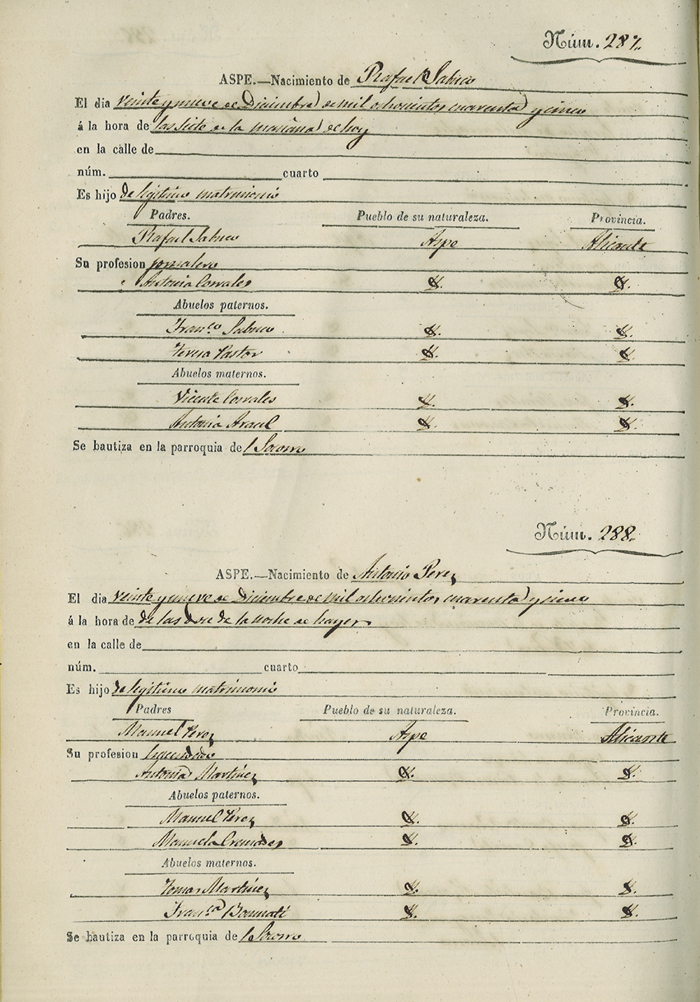 Núm. 287.
ASPE.—Nacimiento de Rafael Sabuco
El dia veinte y nueve de Diciembre de mil ochocientos cuarenta y cinco
á la hora de las siete de la mañana de hoy
en la calle de
núm. cuarto
Es hijo de legitimo matrimonio
Padres. Pueblo de su naturaleza. Provincia.
Rafael Sabuco Aspe Alicante
Su profesion jornalero
Antonia Corrales
Abuelos paternos.
Franco Sabuco
Teresa Pastor
Abuelos maternos.
Vicente Corrales
Antonia Aracil
Se bautiza en la parroquia del Socorro
Núm. 288.
ASPE.—Nacimiento de Antonio Perez
El dia veinte y nueve de Diciembre de mil ochocientos cuarenta y cinco
á la hora de de las doce de la noche de hayer
en la calle de
núm. cuarto
Es hijo de legitimo matrimonio
Padres Pueblo de su naturaleza. Provincia.
Manuel Perez Aspe Alicante
Su profesion
Antonia Martinez
Abuelos paternos.
Manuel Perez
Manuela Cremades
Abuelos maternos.
Tomas Martinez
Franca Bonmati
Se bautiza en la parroquia del Socorro